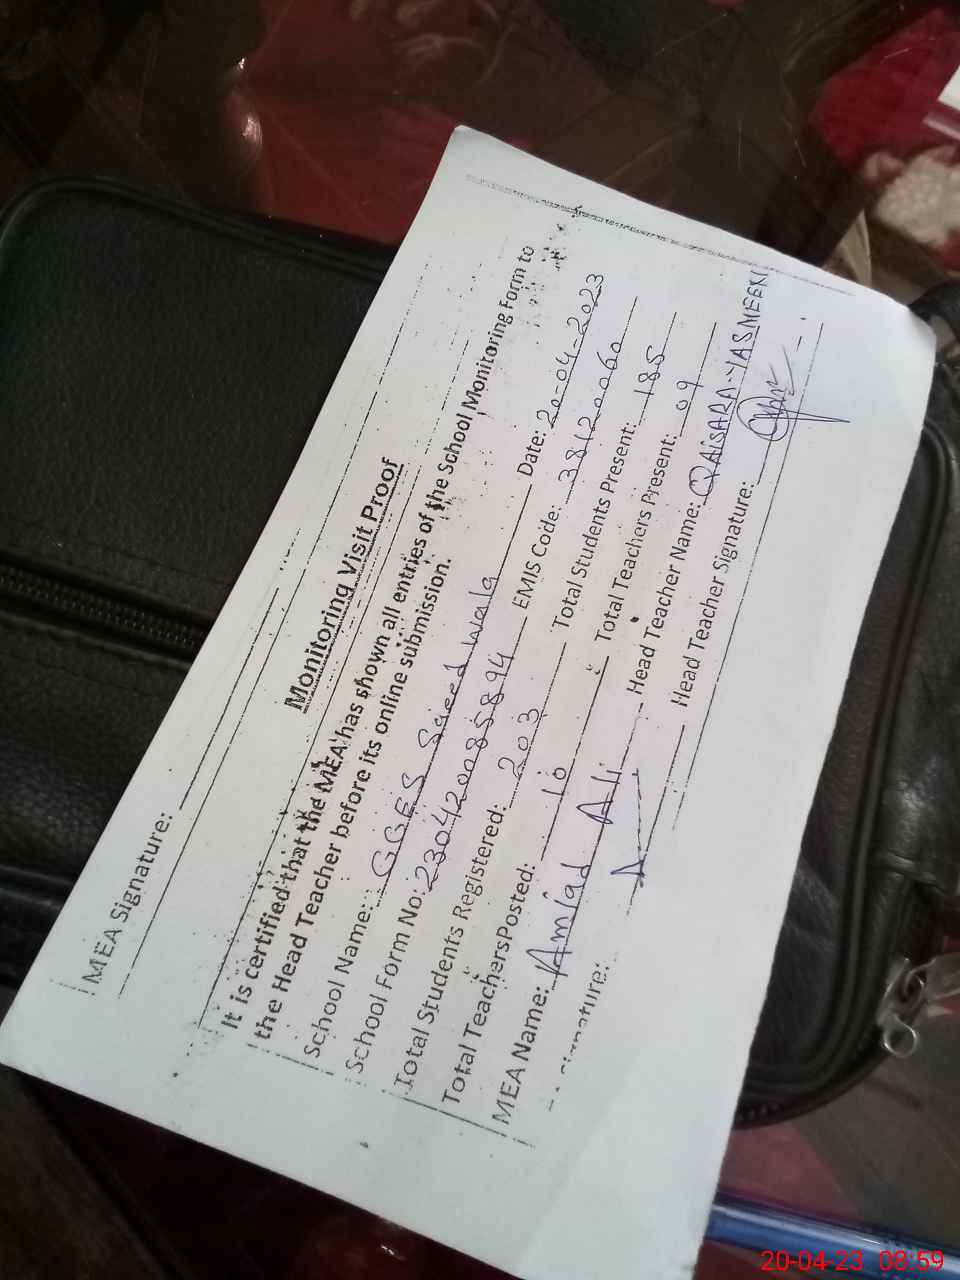 MEA Signature:
Monitoring Visit Proof
It is certified that the MEA has shown all entries of the School Monitoring Form to
the Head Teacher before its online submission.
School Name: GGES Saeed Wala Date: 20-04-2023
School Form No: 2304120085894 EMIS Code: 38120060
Total Students Registered: 203 Total Students Present: 185
Total TeachersPosted: 10 Total Teachers Present: 09
MEA Name: Amjad Ali Head Teacher Name: QAISARA-YASMEEN
Signature: Head Teacher Signature:
20-04-23 08:59